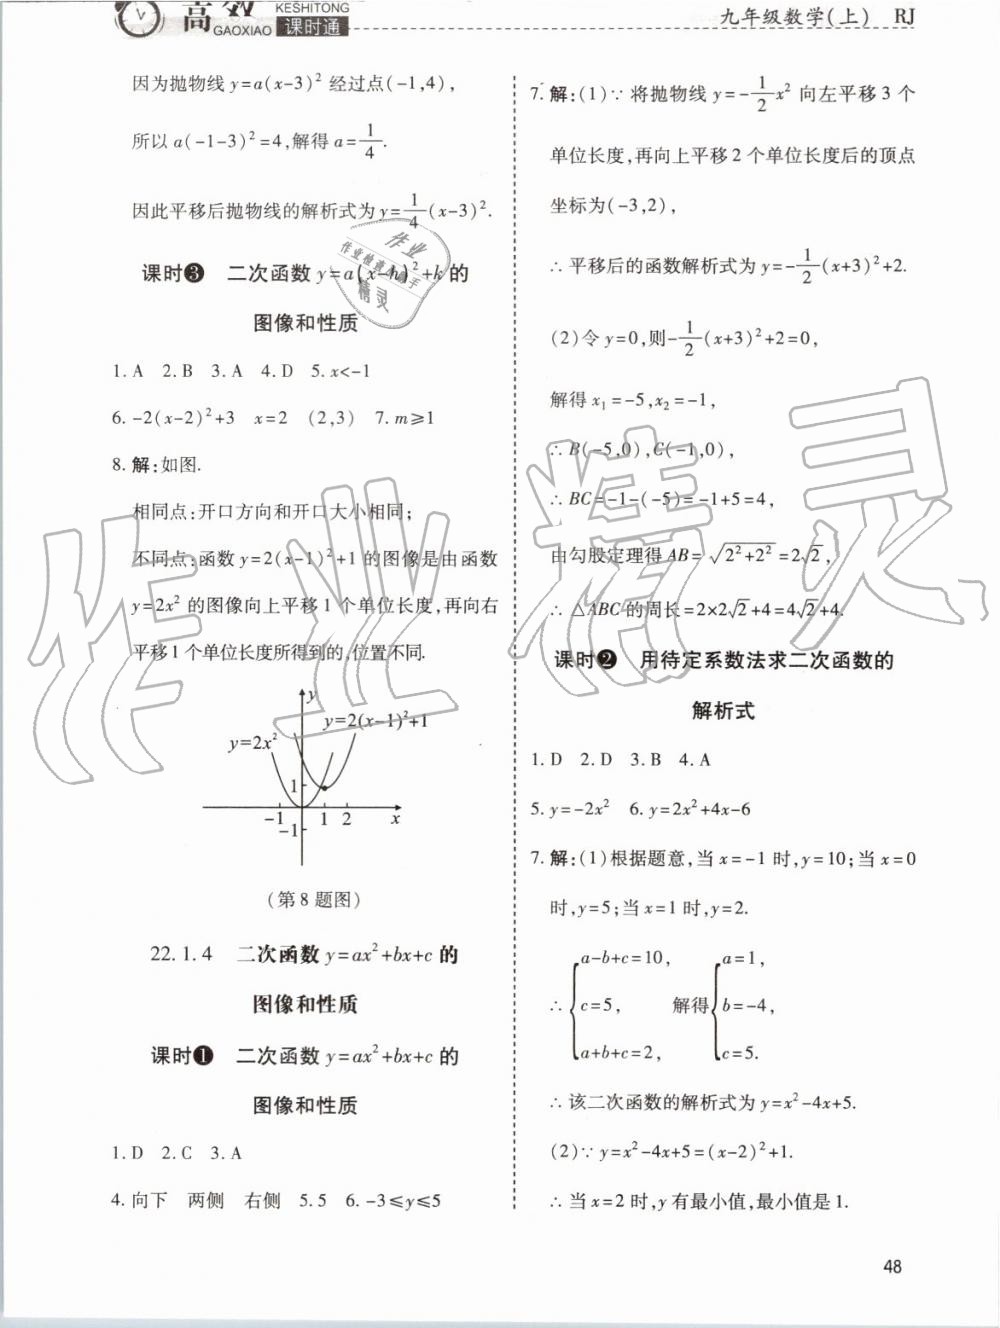 高效
GAOXIAO
KESHITONG
课时通
九年级数学(上) RJ
因为抛物线 y=a(x-3)² 经过点(-1,4),
所以 a(-1-3)²=4,解得 a=1/4.
因此平移后抛物线的解析式为 y=1/4(x-3)².
课时❸ 二次函数 y=a(x-h)²+k 的
图像和性质
1. A 2. B 3. A 4. D 5. x<-1
6. -2(x-2)²+3 x=2 (2,3) 7. m≥1
8. 解:如图.
相同点:开口方向和开口大小相同;
不同点:函数 y=2(x-1)²+1 的图像是由函数
y=2x² 的图像向上平移 1 个单位长度,再向右
平移 1 个单位长度所得到的,位置不同.
y
y=2(x-1)²+1
y=2x²
1
-1 1 2 x
-1
(第 8 题图)
22.1.4 二次函数 y=ax²+bx+c 的
图像和性质
课时❶ 二次函数 y=ax²+bx+c 的
图像和性质
1. D 2. C 3. A
4. 向下 两侧 右侧 5. 5 6. -3≤y≤5
7. 解:(1)∵ 将抛物线 y=-1/2x² 向左平移 3 个
单位长度,再向上平移 2 个单位长度后的顶点
坐标为(-3,2),
∴ 平移后的函数解析式为 y=-1/2(x+3)²+2.
(2)令 y=0,则-1/2(x+3)²+2=0,
解得 x₁=-5,x₂=-1,
∴ B(-5,0),C(-1,0),
∴ BC=-1-(-5)=-1+5=4,
由勾股定理得 AB=√(2²+2²)=2√2,
∴ △ABC 的周长=2×2√2+4=4√2+4.
课时❷ 用待定系数法求二次函数的
解析式
1. D 2. D 3. B 4. A
5. y=-2x² 6. y=2x²+4x-6
7. 解:(1)根据题意,当 x=-1 时,y=10;当 x=0
时,y=5;当 x=1 时,y=2.
a-b+c=10, a=1,
∴ { c=5, 解得 { b=-4,
a+b+c=2, c=5.
∴ 该二次函数的解析式为 y=x²-4x+5.
(2)∵ y=x²-4x+5=(x-2)²+1.
∴ 当 x=2 时,y 有最小值,最小值是 1.
48
作业精灵
作业
精灵